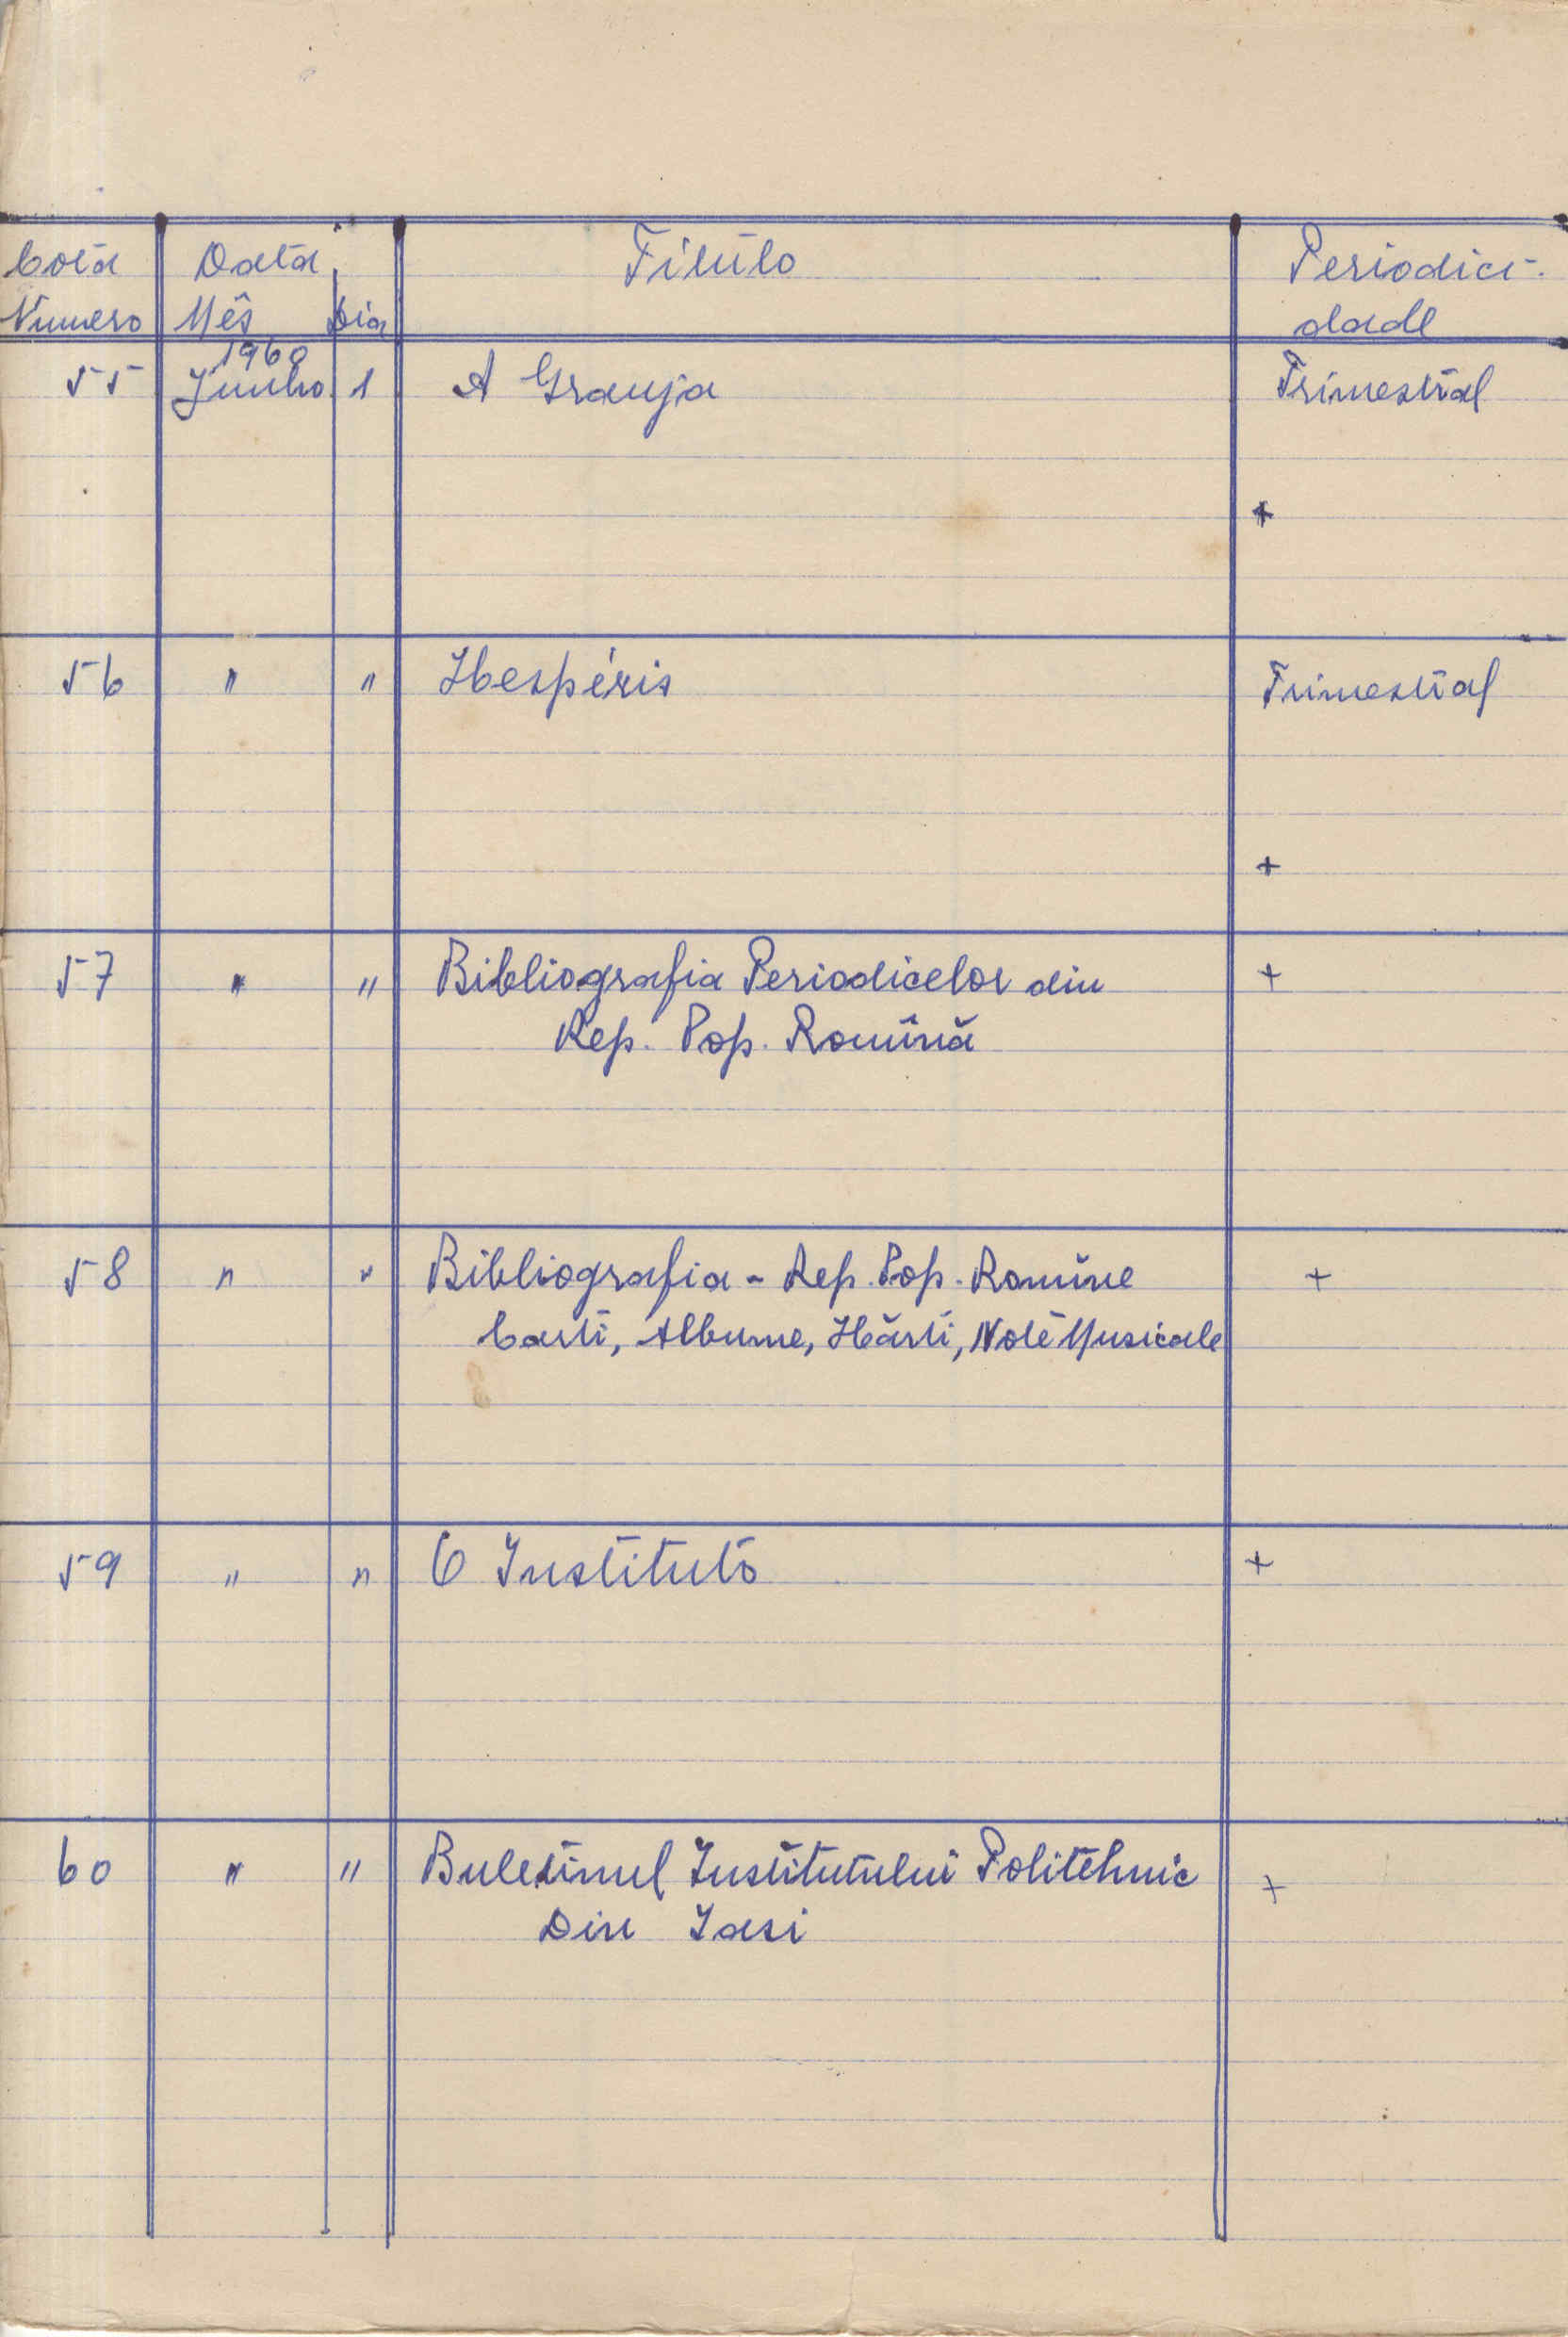 Cota Data Titulo Periodici-
Numero Mês Dia dade
1960
55 Junho 1 A Granja Trimestral
+
56 " " Hespéris Trimestral
+
57 " " Bibliografia Periodicelor din +
Rep. Pop. Romînă
58 " " Bibliografia - Rep. Pop. Romîne +
Carti, Albume, Hărti, Note Musicale
59 " " O Instituto +
60 " " Buletinul Institutului Politehnic +
Din Iasi